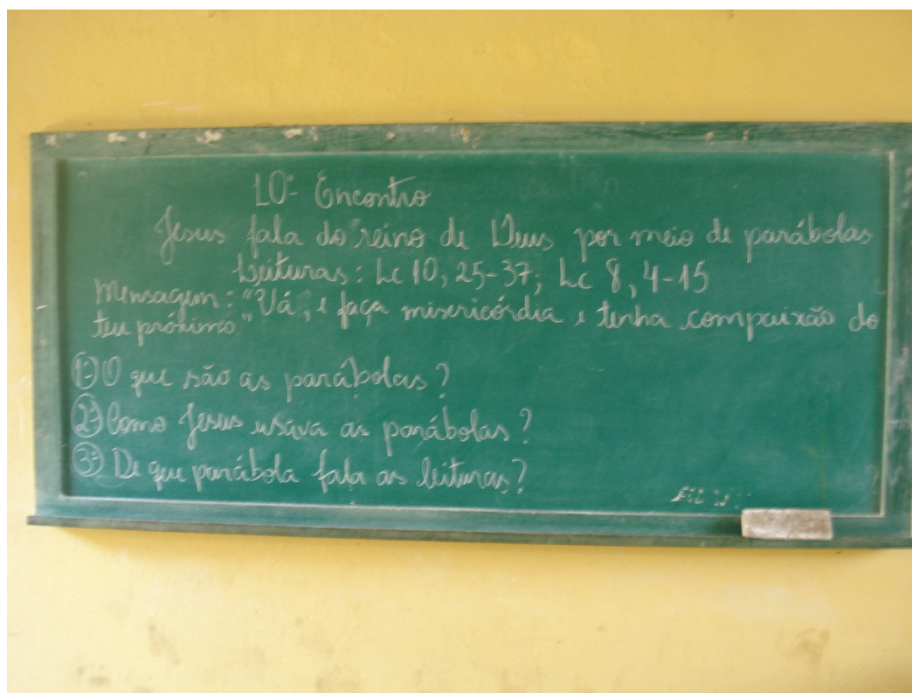 10º Encontro
Jesus fala do reino de Deus por meio de parábolas
Leituras: Lc 10, 25-37; Lc 8, 4-15
Mensagem: "Vá, e faça misericórdia e tenha compaixão do
teu próximo."
1º O que são as parábolas?
2º Como Jesus usava as parábolas?
3º De que parábola fala as leituras?